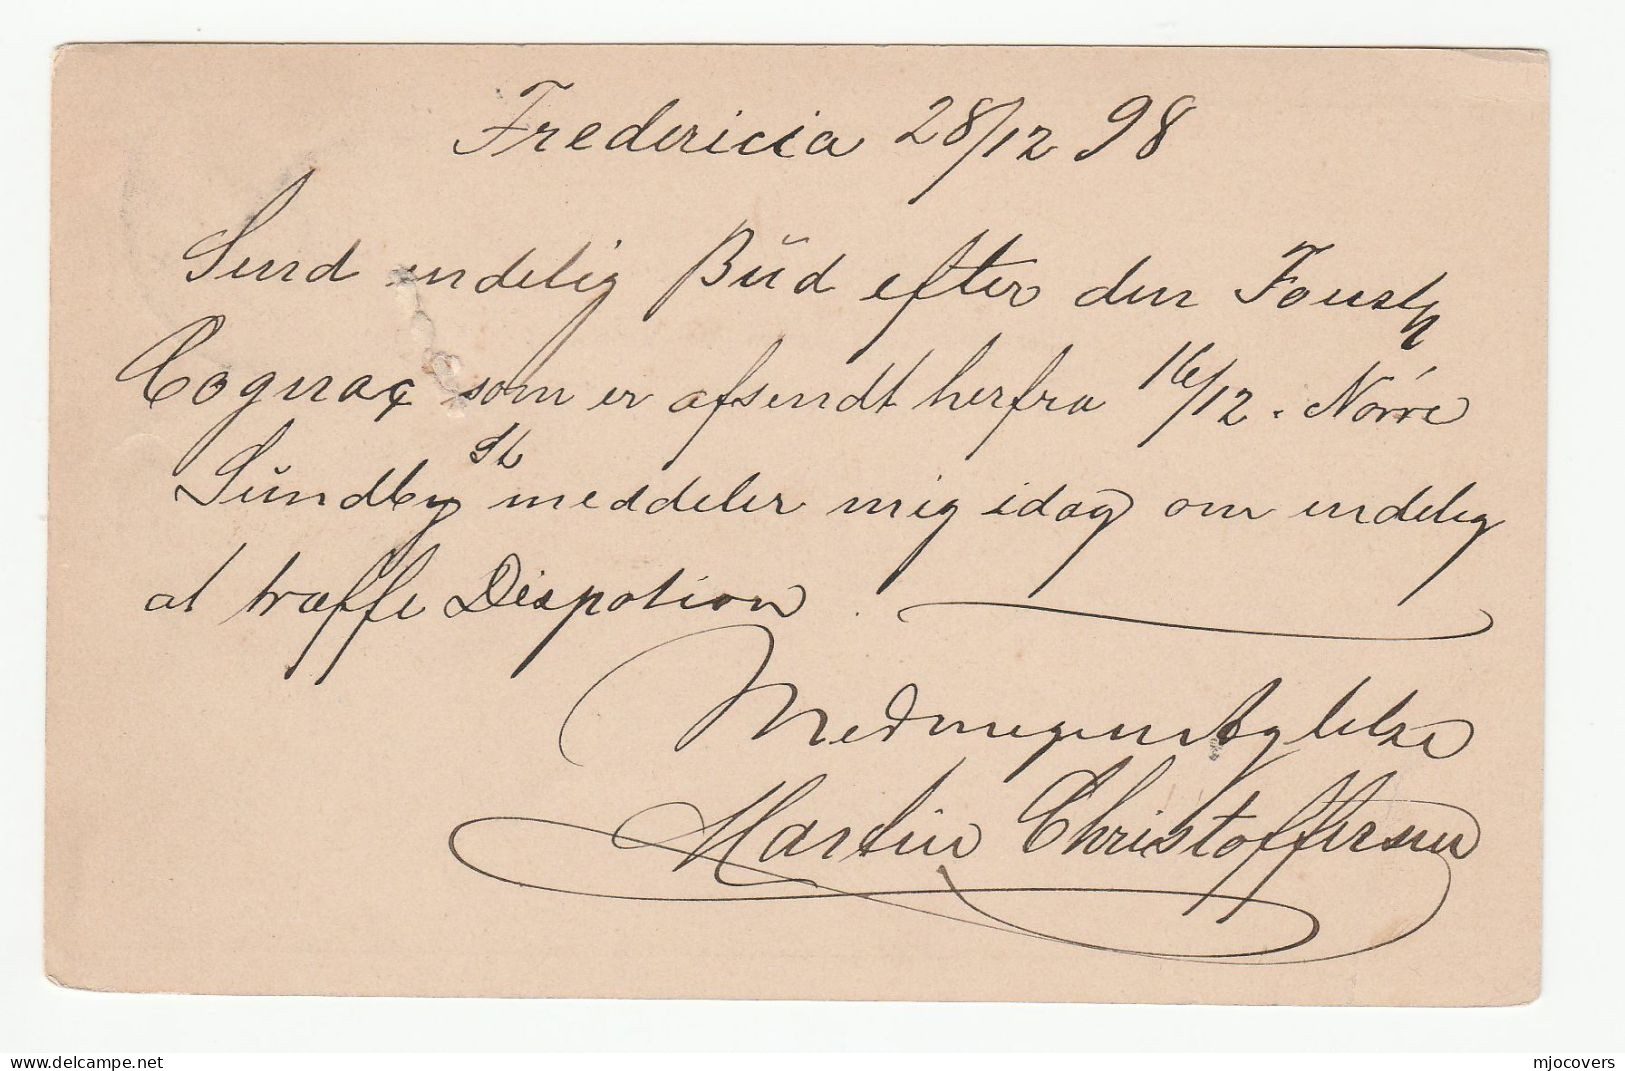 Fredericia 28/12 98
Send endelig Bŭd efter den
Cognac som er afsendt herfra 16/12. Nörre
Sŭndby St meddeler mig idag om endelig
at træffe Dispotion.
Med megen Agtelse
Martin Christoffersen
mjocovers
https://www.delcampe.net